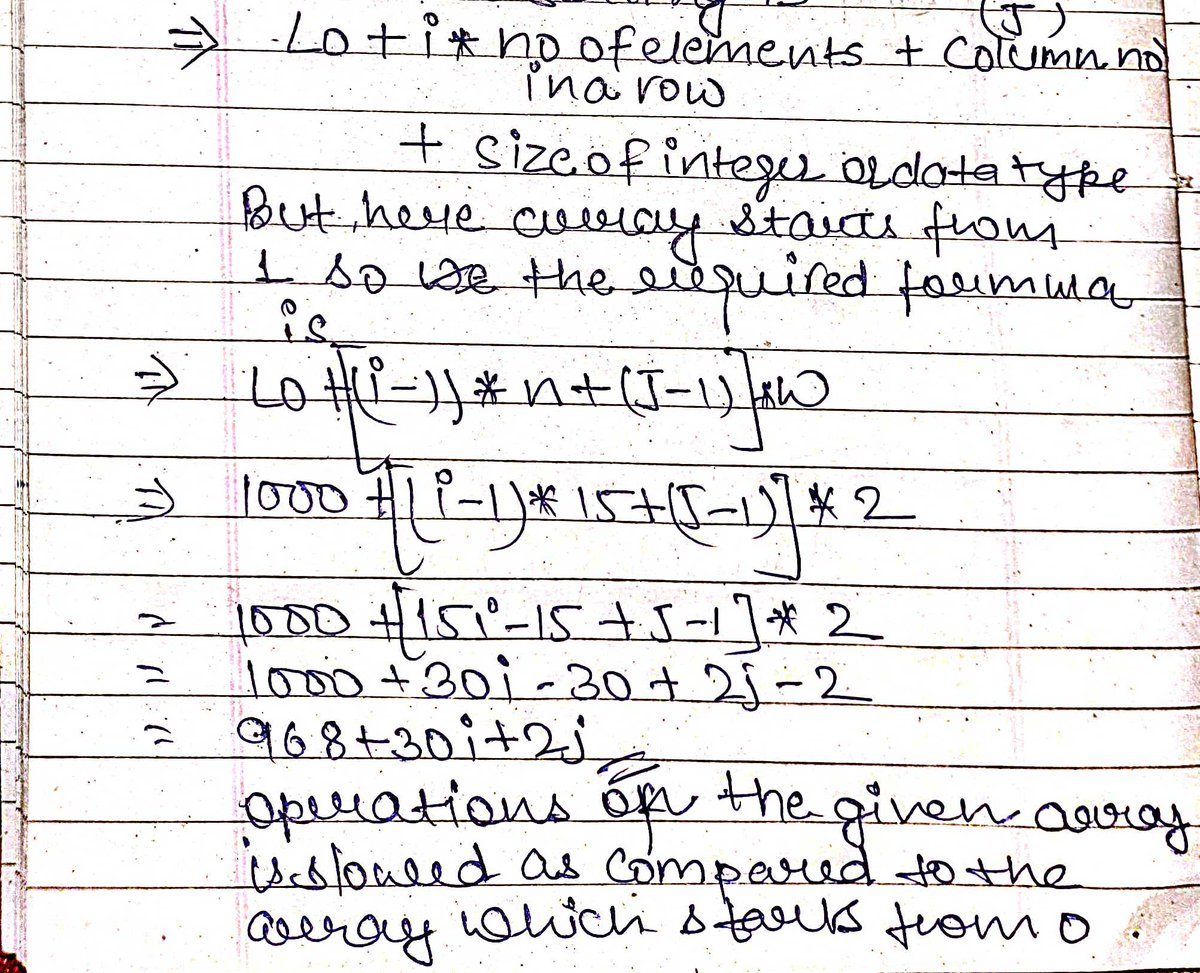 (J)
⇒ Lo + i * no of elements + Column no
in a row
+ size of integer or data type
But here array starts from
1 so the required formula
is
⇒ Lo + [(i-1) * n + (J-1)] * w
⇒ 1000 + [(i-1) * 15 + (J-1)] * 2
= 1000 + [15i - 15 + J - 1] * 2
= 1000 + 30i - 30 + 2j - 2
= 968 + 30i + 2j
operations on the given array
is slowed as compared to the
array which starts from 0.